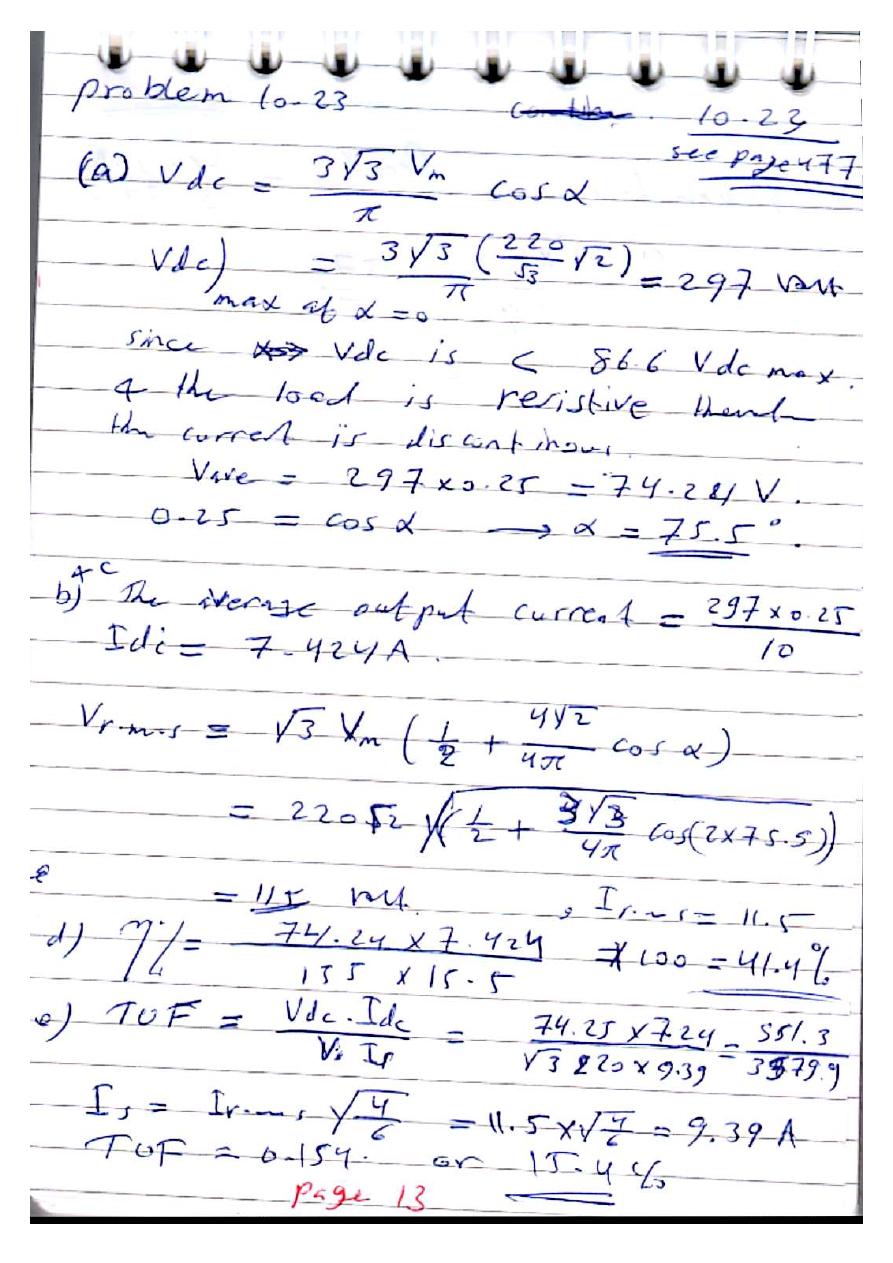 problem 10-23
10-23
see page 477
(a) Vdc = 3√3 Vm / π cos α
Vdc) max at α = 0 = 3√3 / π (220/√3 √2) = 297 volt
since Vdc is < 86.6 Vdc max.
& the load is resistive then
the current is discontinous
Vave = 297 x 0.25 = 74.24 V.
0.25 = cos α → α = 75.5°.
b) + c The average output current = 297 x 0.25 / 10
Idc = 7.424 A.
Vr.m.s = √3 Vm ( 1/2 + 4√2 / 4π cos α )
= 220 √2 √( 1/2 + 3√3 / 4π cos(2x75.5))
= 115 volt. , Ir.m.s = 11.5
d) η% = 74.24 x 7.424 / 135 x 15.5 x 100 = 41.4%
e) TUF = Vdc . Idc / Vs Is = 74.25 x 7.24 / √3 220 x 9.39 = 551.3 / 3579.9
Is = Ir.m.s √4/6 = 11.5 x √4/6 = 9.39 A
TUF = 0.154. or 15.4 %
page 13